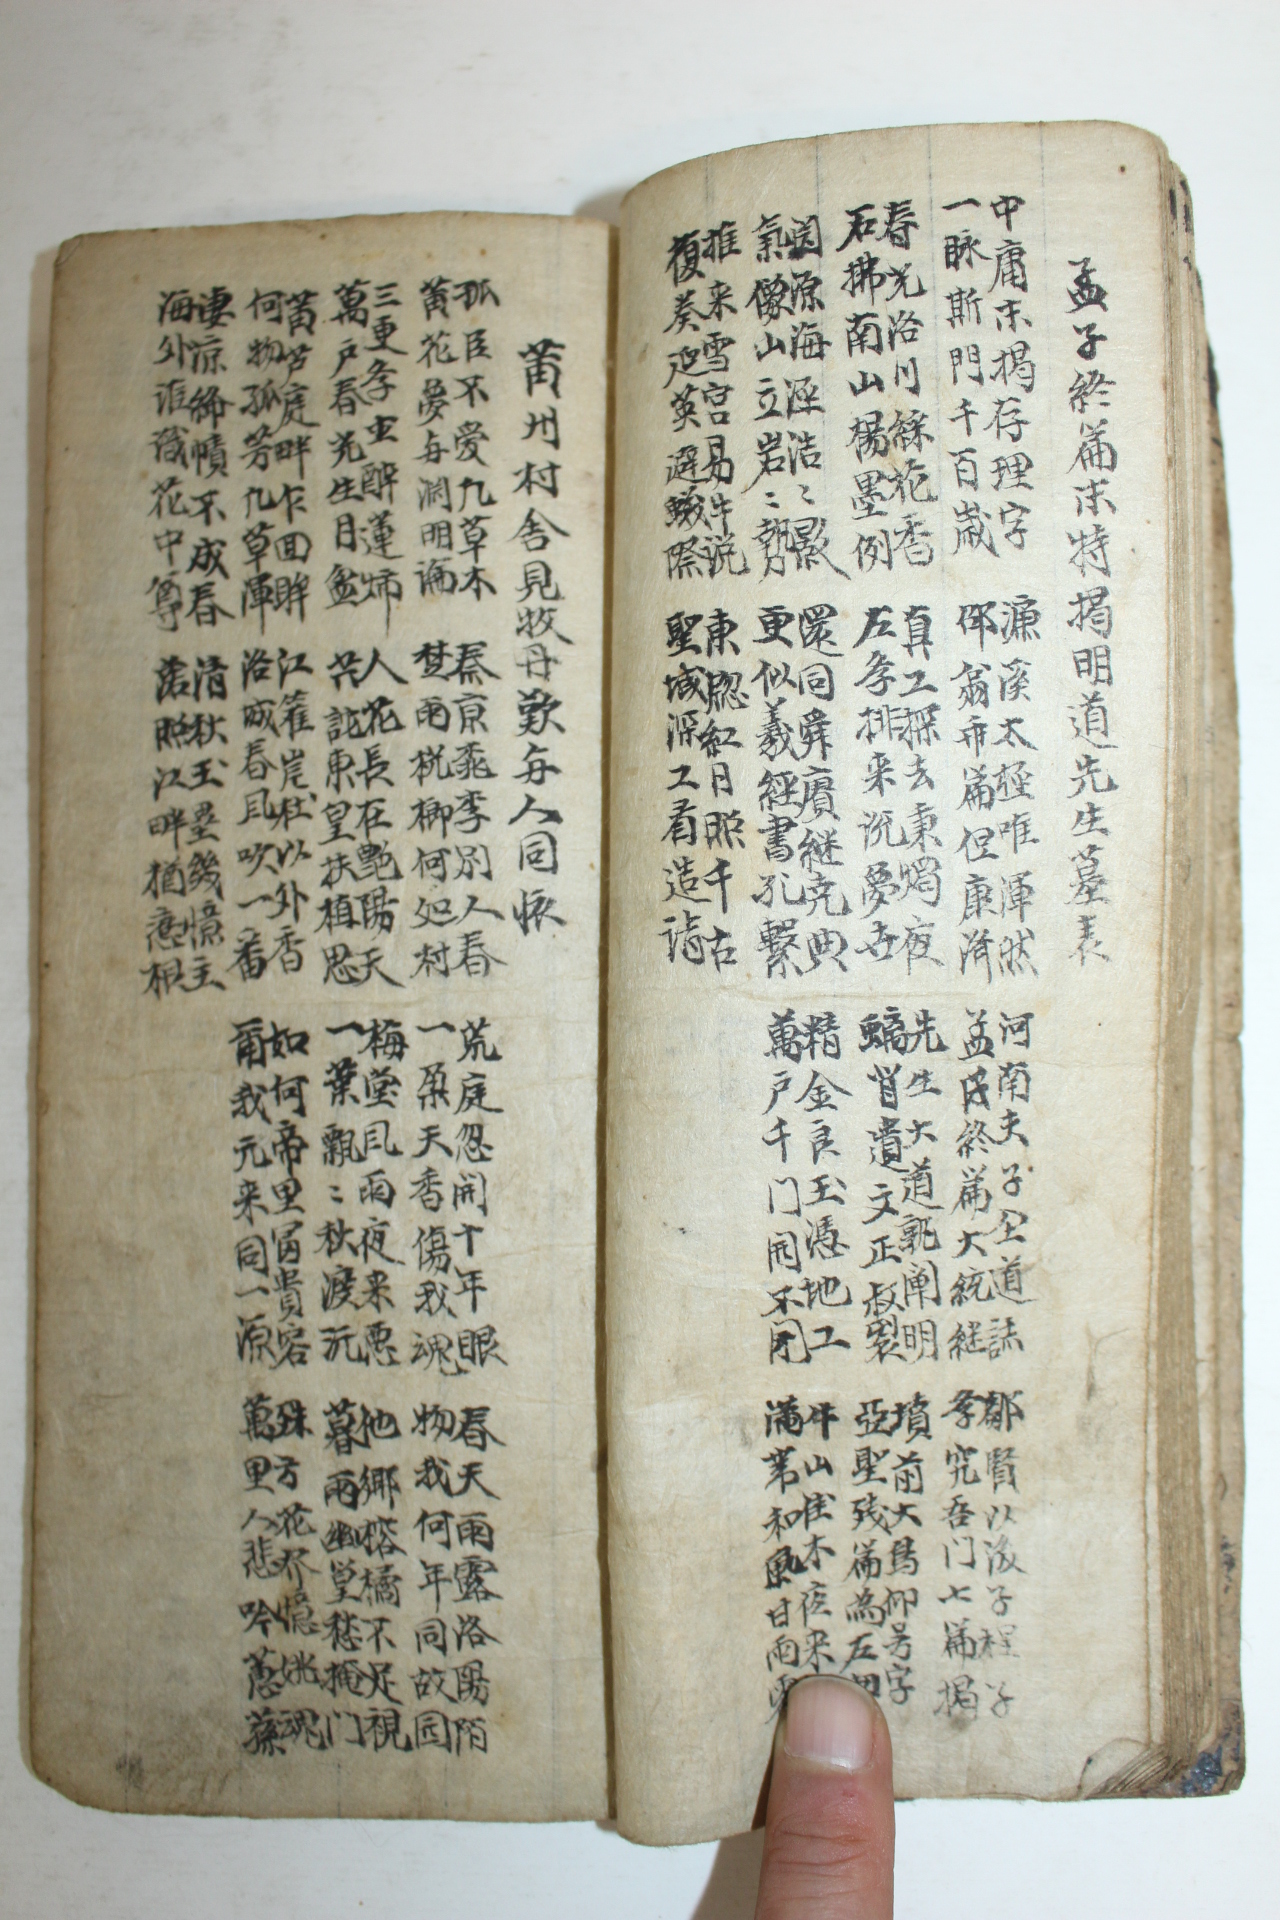 孟子終篇末特揭明道先生墓表
中庸末揭存理字
一脉斯門千百歲
濂溪太極唯渾然
邵翁市篇但康濟
河南夫子 道誌
孟氏終篇大統継
鄒賢以後子程子
 究吾門七篇揭
春光洛川綵花香
石拂南山楊墨例
真工探去秉燭夜
左 排来說夢世
先生大道郭闡明
蝺 遺文正叔製
墳前大 仰号字
亞聖殘篇為左
 源海 浩〻影
氣像山立岩〻勢
還同舜賡継堯典
更似羲經書孔繫
精金良玉憑地工
萬戶千门同不閉
牛山 木夜来
滿 和風甘雨
推来雪宮易牛說
復 英避 際
東 紅日照千古
聖域深工看造詣
莆州村舍見牧丹歎与人同恨
孤臣不愛九草木
莆花夢与淵明論
秦京桃李別人春
楚雨梡柳何処村
荒庭忽開十年眼
一朶天香傷我魂
春天雨露洛陽陌
物我何年同故园
三更 虫醉蓮 
萬戶春光生月盆
人花長在艶陽天
共說東皇扶植思
梅堂风雨夜来悪
一葉飄〻秋渡沅
他鄉榕橘不足視
暮雨幽篁愁掩门
莆芦庭畔乍回眸
何物孤芳九草渾
江籬岸杜以外香
洛城春风吹一番
如何帝里富貴容
爾我元来同一源
殊方花界憶姚魂
萬里人悲吟蕙蓀
凄凉絳幘不成春
海外誰識花中尊
清秋玉壘幾憶主
落照江畔猶悲根